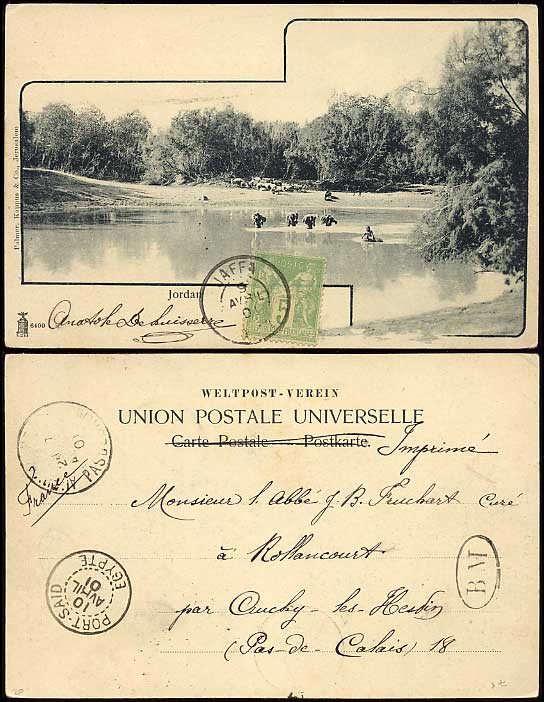 Palmer, Kappus & Co., Jerusalem
JAFFA
9
AVRIL
Jordan
6400
WELTPOST-VEREIN
UNION POSTALE UNIVERSELLE
Carte Postale Postkarte.
Imprimé
France
Monsieur l. Abbé J. B. Fruchart Curé
à Rollancourt
BM
PORT-SAID
10
AVRIL
01
EGYPTE
par Auchy-les-Hesdin
(Pas-de-Calais) 18